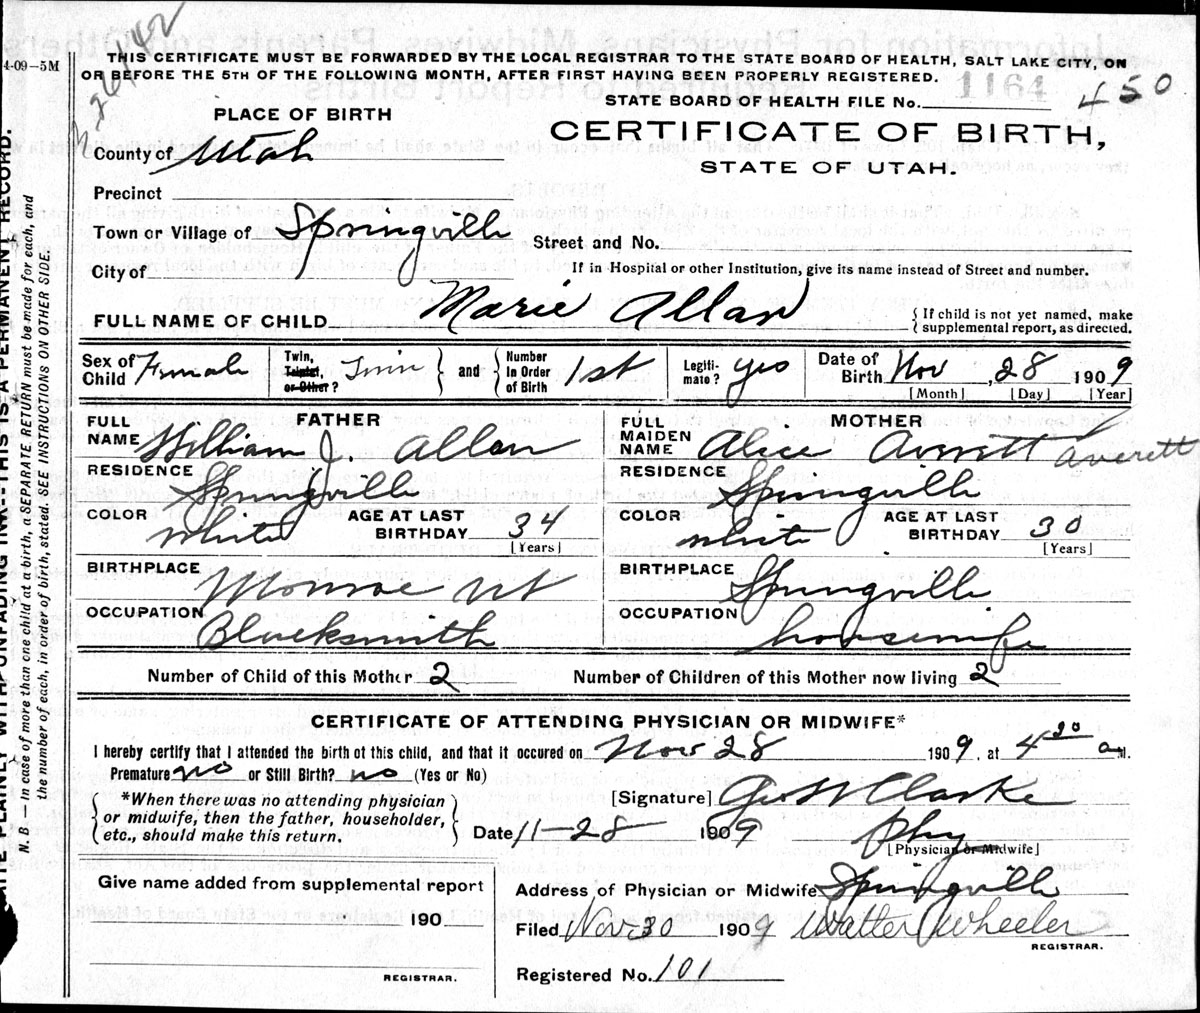 26442
4-09-5M
THIS CERTIFICATE MUST BE FORWARDED BY THE LOCAL REGISTRAR TO THE STATE BOARD OF HEALTH, SALT LAKE CITY, ON
OR BEFORE THE 5TH OF THE FOLLOWING MONTH, AFTER FIRST HAVING BEEN PROPERLY REGISTERED.
STATE BOARD OF HEALTH FILE No. 1164 450
PLACE OF BIRTH
CERTIFICATE OF BIRTH,
STATE OF UTAH.
County of Utah
Precinct
Town or Village of Springville Street and No.
City of
If in Hospital or other Institution, give its name instead of Street and number.
FULL NAME OF CHILD Marie Allan { If child is not yet named, make supplemental report, as directed.
Sex of Child Female Twin, Triplet, or Other? Twin } and { Number In Order of Birth 1st Legitimate? yes Date of Birth Nov, 28 1909
[Month] [Day] [Year]
FATHER
FULL NAME William J. Allan
RESIDENCE Springville
COLOR White AGE AT LAST BIRTHDAY 34
[Years]
BIRTHPLACE Monroe Ut
OCCUPATION Blacksmith
MOTHER
FULL MAIDEN NAME Alice Averett Averett
RESIDENCE Springville
COLOR white AGE AT LAST BIRTHDAY 30
[Years]
BIRTHPLACE Springville
OCCUPATION housewife
Number of Child of this Mother 2 Number of Children of this Mother now living 2
CERTIFICATE OF ATTENDING PHYSICIAN OR MIDWIFE*
I hereby certify that I attended the birth of this child, and that it occured on Nov 28 1909, at 4 20 a M.
Premature no or Still Birth? no (Yes or No)
*When there was no attending physician
or midwife, then the father, householder,
etc., should make this return.
[Signature] Geo W Clarke
Date 11-28 1909 Phy
[Physician or Midwife]
Give name added from supplemental report
190
REGISTRAR.
Address of Physician or Midwife Springville
Filed Nov 30 1909 Walter Wheeler
REGISTRAR.
Registered No. 101
WRITE PLAINLY WITH UNFADING INK--THIS IS A PERMANENT RECORD.
N. B. — In case of more than one child at a birth, a SEPARATE RETURN must be made for each, and
the number of each, in order of birth, stated. SEE INSTRUCTIONS ON OTHER SIDE.